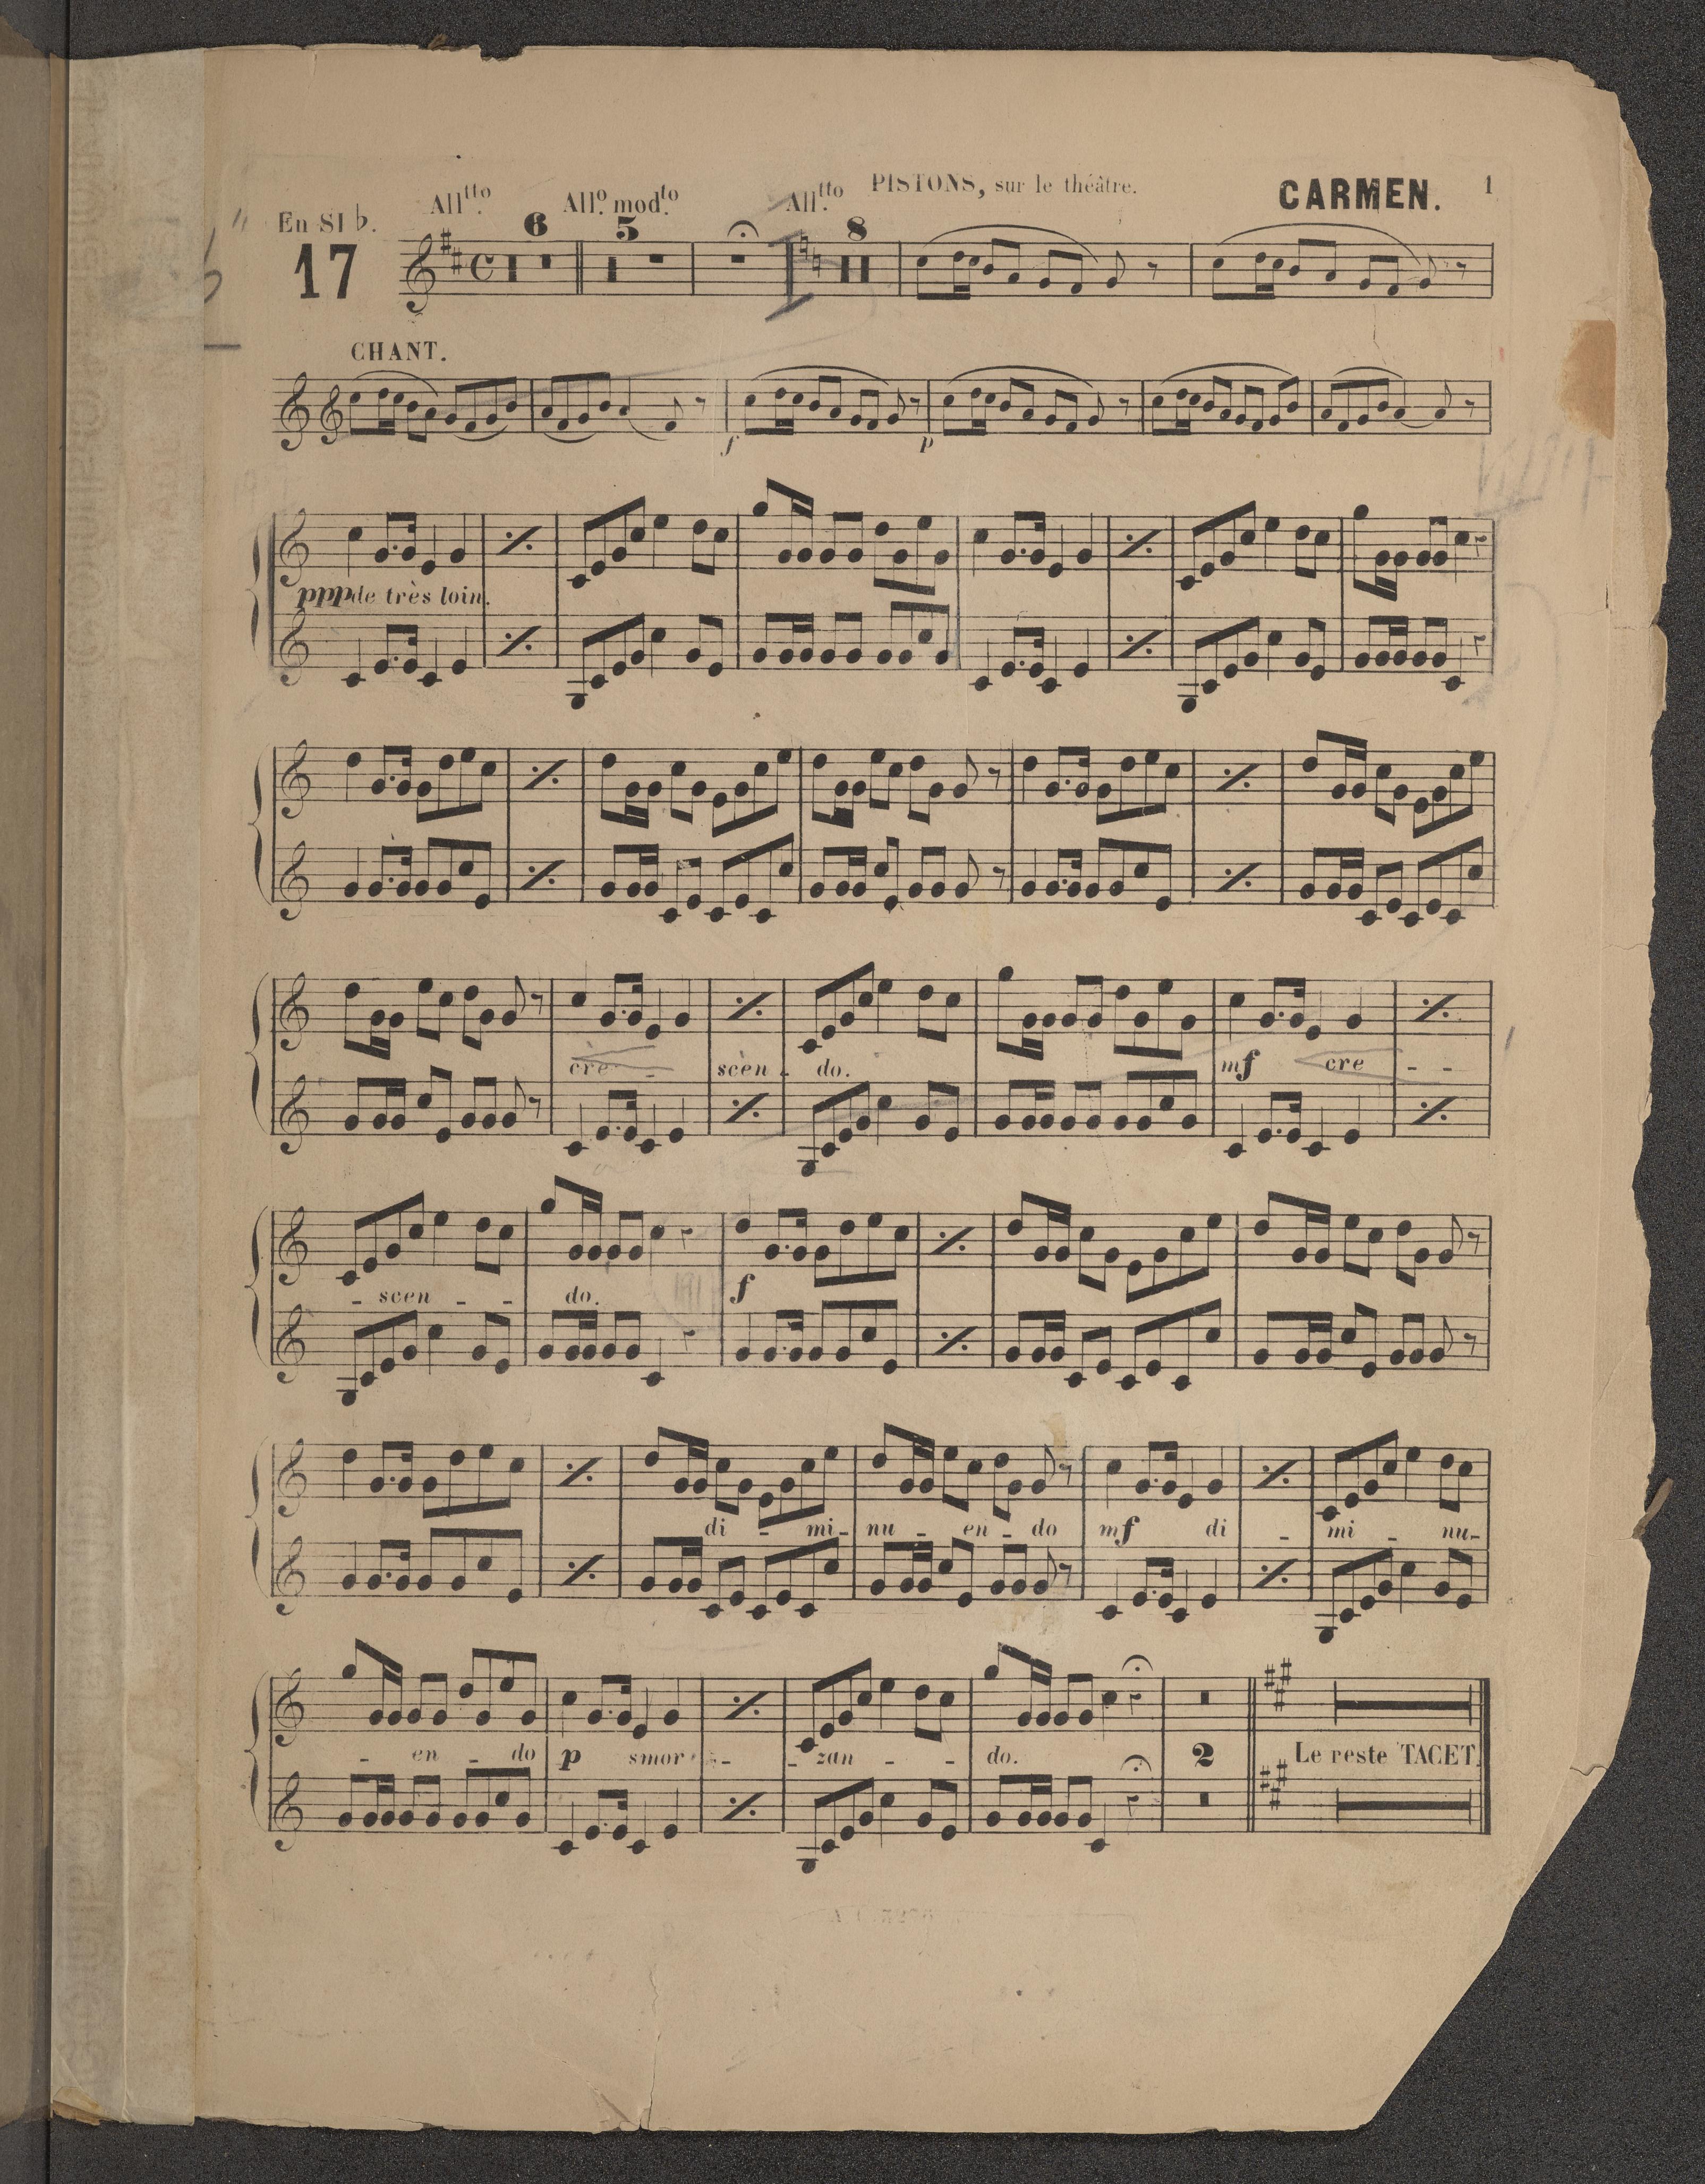 PISTONS, sur le théâtre.
CARMEN. 1
En SI ♭.
17
All.tto All.o mod.to All.tto
6 5 8
CHANT.
f p
ppp de très loin.
cre - scen - do. mf cre - -
- scen - - do. f
di - mi - nu - en - do mf di - mi - nu-
- en - do p smor - - zan - - do. 2 Le reste TACET.